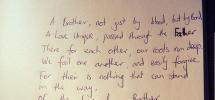 A Brother, not just by blood, but by Bond.
A Love Unique, passed through the Father
There for each other, our roots run deep.
We fail one another, and easily forgive.
For their is nothing that can stand
in the way,
Of the Brother